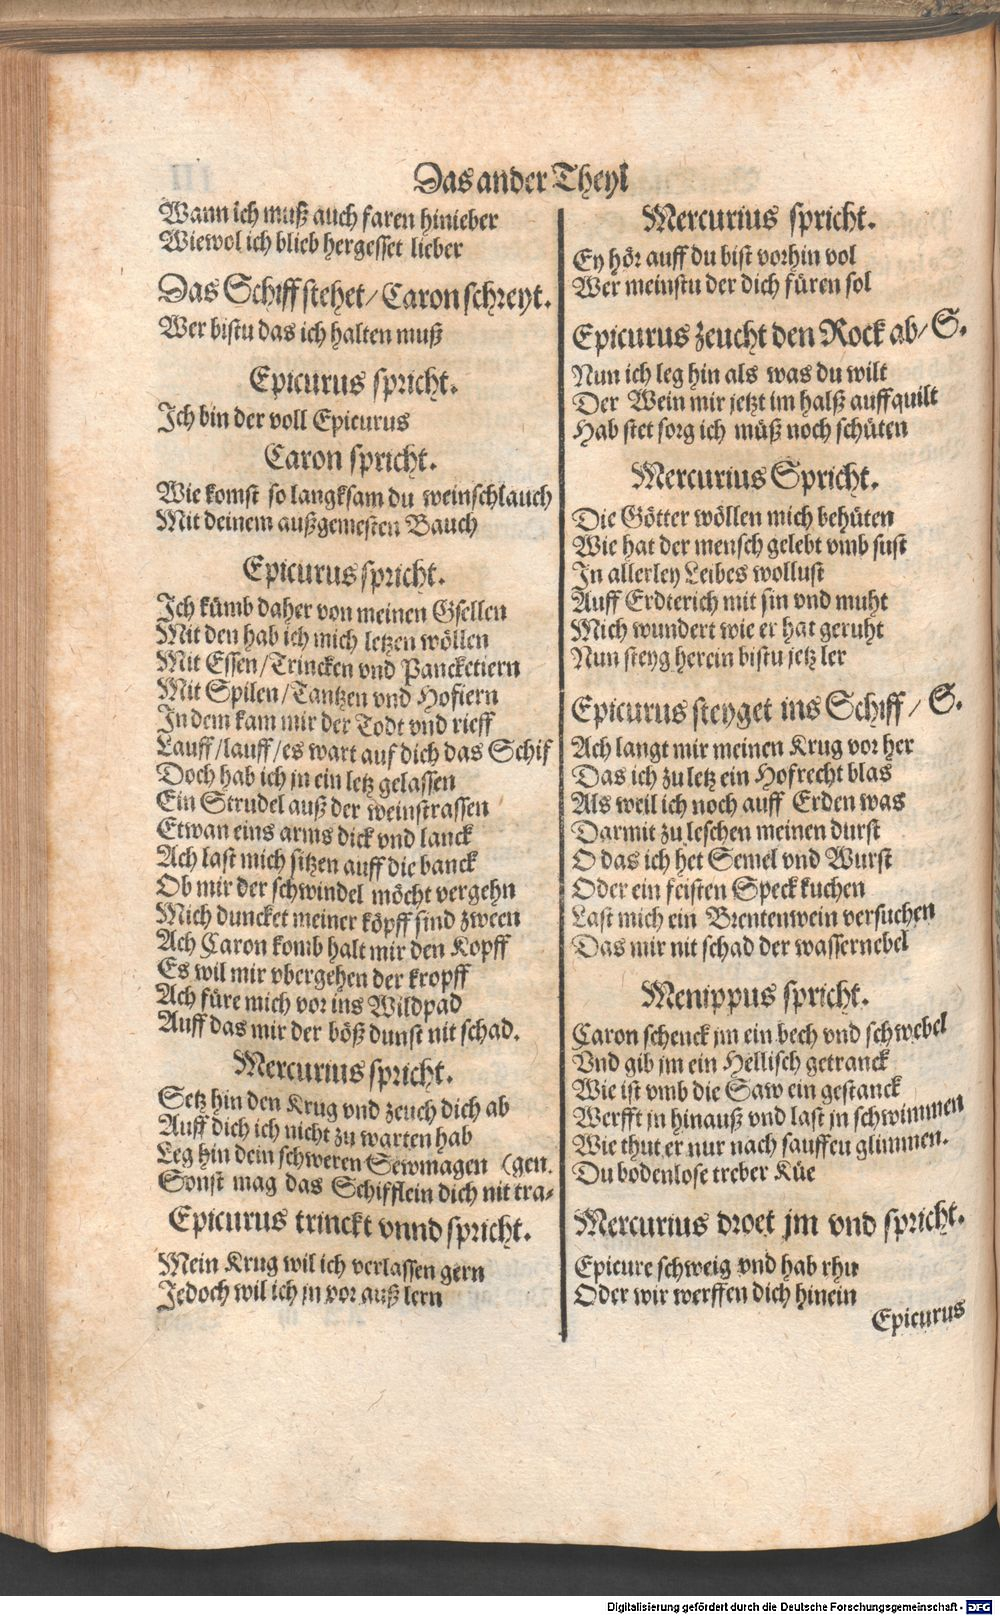 Das ander Theyl
Wann ich muß auch faren hinieber
Wiewol ich blieb hergesset lieber
Das Schiff stehet/ Caron schreyt.
Wer bistu das ich halten muß
Epicurus spricht.
Ich bin der voll Epicurus
Caron spricht.
Wie komst so langksam du weinschlauch
Mit deinem außgemesten Bauch
Epicurus spricht.
Ich kümb daher von meinen Gsellen
Mit den hab ich mich letzen wöllen
Mit Essen/Trincken vnd Pancketiern
Mit Spilen/Tantzen vnd Hofiern
In dem kam mir der Todt vnd rieff
Lauff/lauff/es wart auf dich das Schif
Doch hab ich jn ein letz gelassen
Ein Strudel auß der weinstrassen
Etwan eins arms dick vnd lanck
Ach last mich sitzen auff die banck
Ob mir der schwindel möcht vergehn
Mich duncket meiner köpff sind zween
Ach Caron komb halt mir den Kopff
Es wil mir vbergehen der kropff
Ach füre mich vor ins Wildpad
Auff das mir der böß dunst nit schad.
Mercurius spricht.
Setz hin den Krug vnd zeuch dich ab
Auff dich ich nicht zu warten hab
Leg hin dein schweren Sewmagen (gen.
Sonst mag das Schifflein dich nit tra-
Epicurus trinckt vnnd spricht.
Mein Krug wil ich verlassen gern
Jedoch wil ich jn vor auß lern
Mercurius spricht.
Ey hör auff du bist vorhin vol
Wer meinstu der dich füren sol
Epicurus zeucht den Rock ab/ S.
Nun ich leg hin als was du wilt
Der Wein mir jetzt im halß auffquilt
Hab stet sorg ich müß noch schüten
Mercurius Spricht.
Die Götter wöllen mich behüten
Wie hat der mensch gelebt vmb sust
In allerley Leibes wollust
Auff Erdterich mit sin vnd muht
Mich wundert wie er hat geruht
Nun steyg herein bistu jetz ler
Epicurus steyget ins Schiff/ S.
Ach langt mir meinen Krug vor her
Das ich zu letz ein Hofrecht blas
Als weil ich noch auff Erden was
Darmit zu leschen meinen durst
O das ich het Semel vnd Wurst
Oder ein feisten Speckkuchen
Last mich ein Brentenwein versuchen
Das mir nit schad der wassernebel
Menippus spricht.
Caron schenck jm ein bech vnd schwebel
Vnd gib jm ein Hellisch getranck
Wie ist vmb die Saw ein gestanck
Werfft jn hinauß vnd last jn schwimmen
Wie thut er nur nach sauffen glimmen.
Du bodenlose treber Küe
Mercurius droet jm vnd spricht.
Epicure schweig vnd hab rhu
Oder wir werffen dich hinein
Epicurus
Digitalisierung gefördert durch die Deutsche Forschungsgemeinschaft - DFG